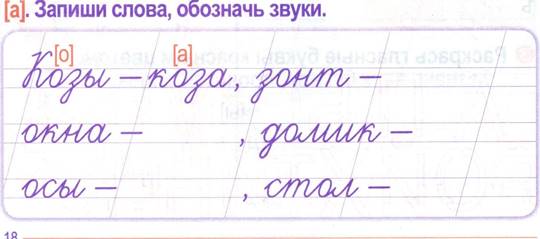 [а]. Запиши слова, обозначь звуки.
[о] [а]
Козы – коза, зонт –
окна – , домик –
осы – , стол –
18